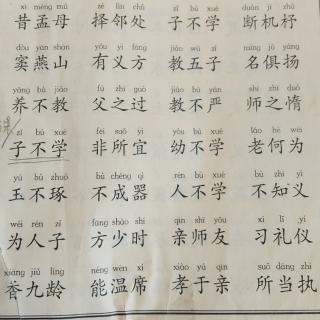 xī mèng mǔ zé lín chǔ zǐ bù xué duàn jī zhù
昔孟母 择邻处 子不学 断机杼
dòu yān shān yǒu yì fāng jiào wǔ zǐ míng jù yáng
窦燕山 有义方 教五子 名俱扬
yǎng bú jiào fù zhī guò jiào bù yán shī zhī duò
养不教 父之过 教不严 师之惰
zǐ bù xué fēi suǒ yí yòu bù xué lǎo hé wéi
子不学 非所宜 幼不学 老何为
yù bù zhuó bù chéng qì rén bù xué bù zhī yì
玉不琢 不成器 人不学 不知义
wéi rén zǐ fāng shào shí qīn shī yǒu xí lǐ yí
为人子 方少时 亲师友 习礼仪
xiāng jiǔ líng néng wēn xí xiào yú qīn suǒ dāng zhí
香九龄 能温席 孝于亲 所当执